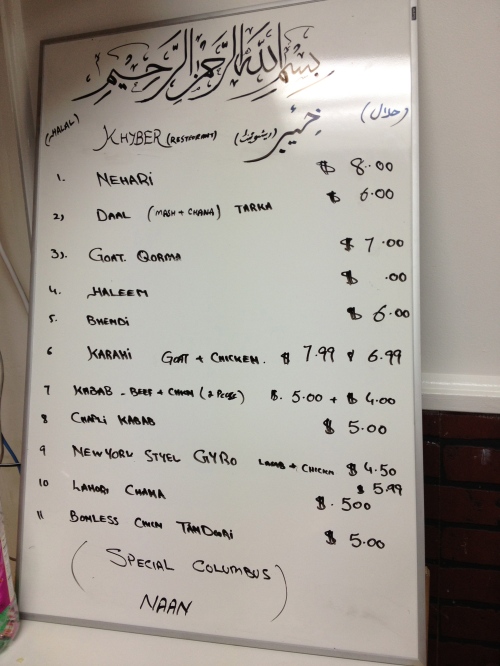 بسم الله الرحمن الرحيم
(HALAL) KHYBER (RESTEURANT) خيبر (حلال)
1. NEHARI $ 8.00
2) DAAL (MASH + CHANA) TARKA $ 6.00
3). GOAT. QORMA $ 7.00
4. HALEEM $ .00
5. BHENDI $ 6.00
6 KARAHI GOAT + CHICKEN. $ 7.99 6.99
7 KABAB - BEEF + CHICKN (2 PCESE) $. 5.00 + $ 4.00
8 CHAPLI KABAB $ 5.00
9 NEWYORK STYEL GYRO LAMB + CHICKN $ 4.50
$ 5.99
10 LAHORI CHANA $. 500
11 BONLESS CHICN TANDOORI $ 5.00
(SPECIAL COLUMBUS
NAAN)